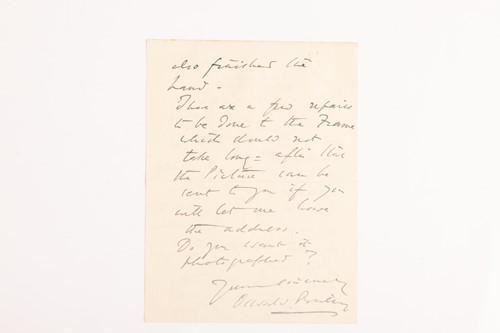 also finished the
hand -
There are a few repairs
to be done to the Frame
which should not
take long = after that
the Picture can be
sent to you if you
will let me know
the address.
Do you want it
photographed?
Yours sincerely
Oswald Birley